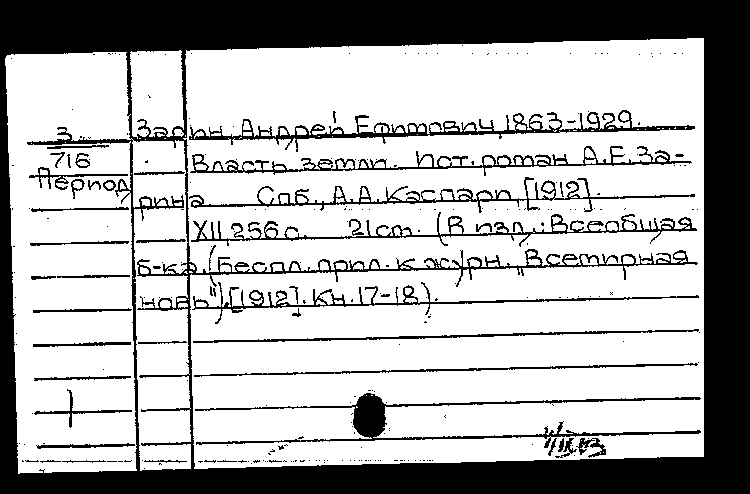 З Зарин, Андрей Ефимович, 1863-1929.
716 Власть земли. Ист. роман А.Е. За-
Период рина Спб., А.А. Каспари, [1912].
XII, 256 с. 21 см. (В изд.: Всеобщая
б-ка. (Беспл. прил. к журн. "Всемирная
новь"), [1912]. Кн. 17-18).